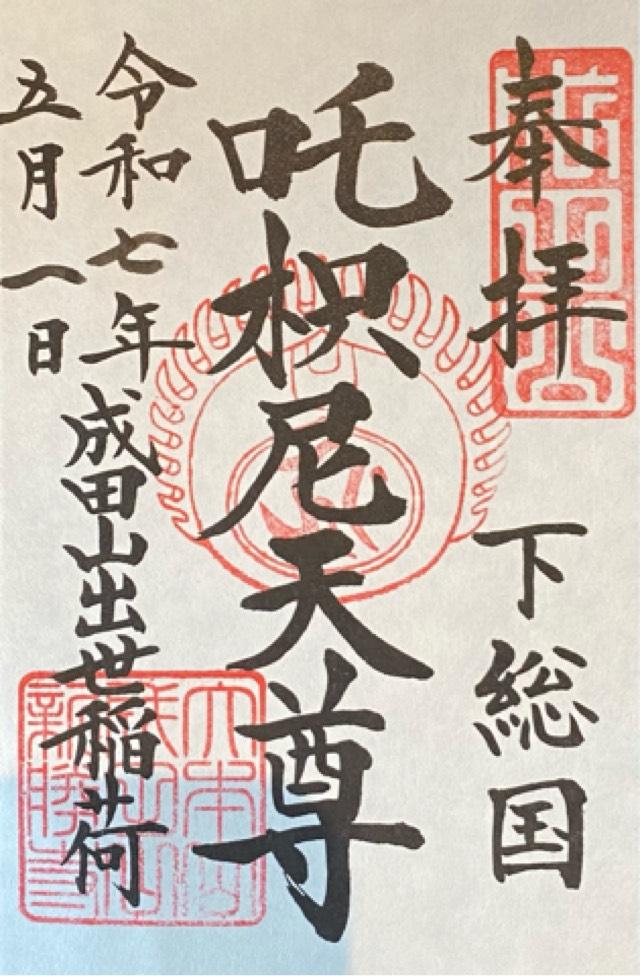 奉拝
下総国
吒枳尼天尊
令和七年
五月一日
成田山出世稲荷